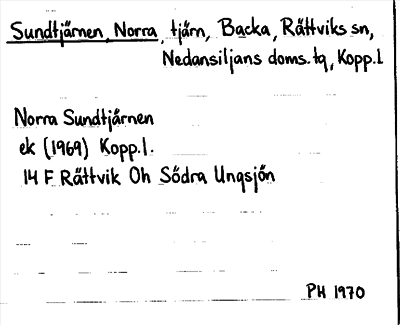 Sundtjärnen, Norra, tjärn, Backa, Rättviks sn,
Nedansiljans doms.tg, Kopp.l
Norra Sundtjärnen
ek (1969) Kopp.l.
14 F Rättvik Oh Södra Ungsjön
PH 1970